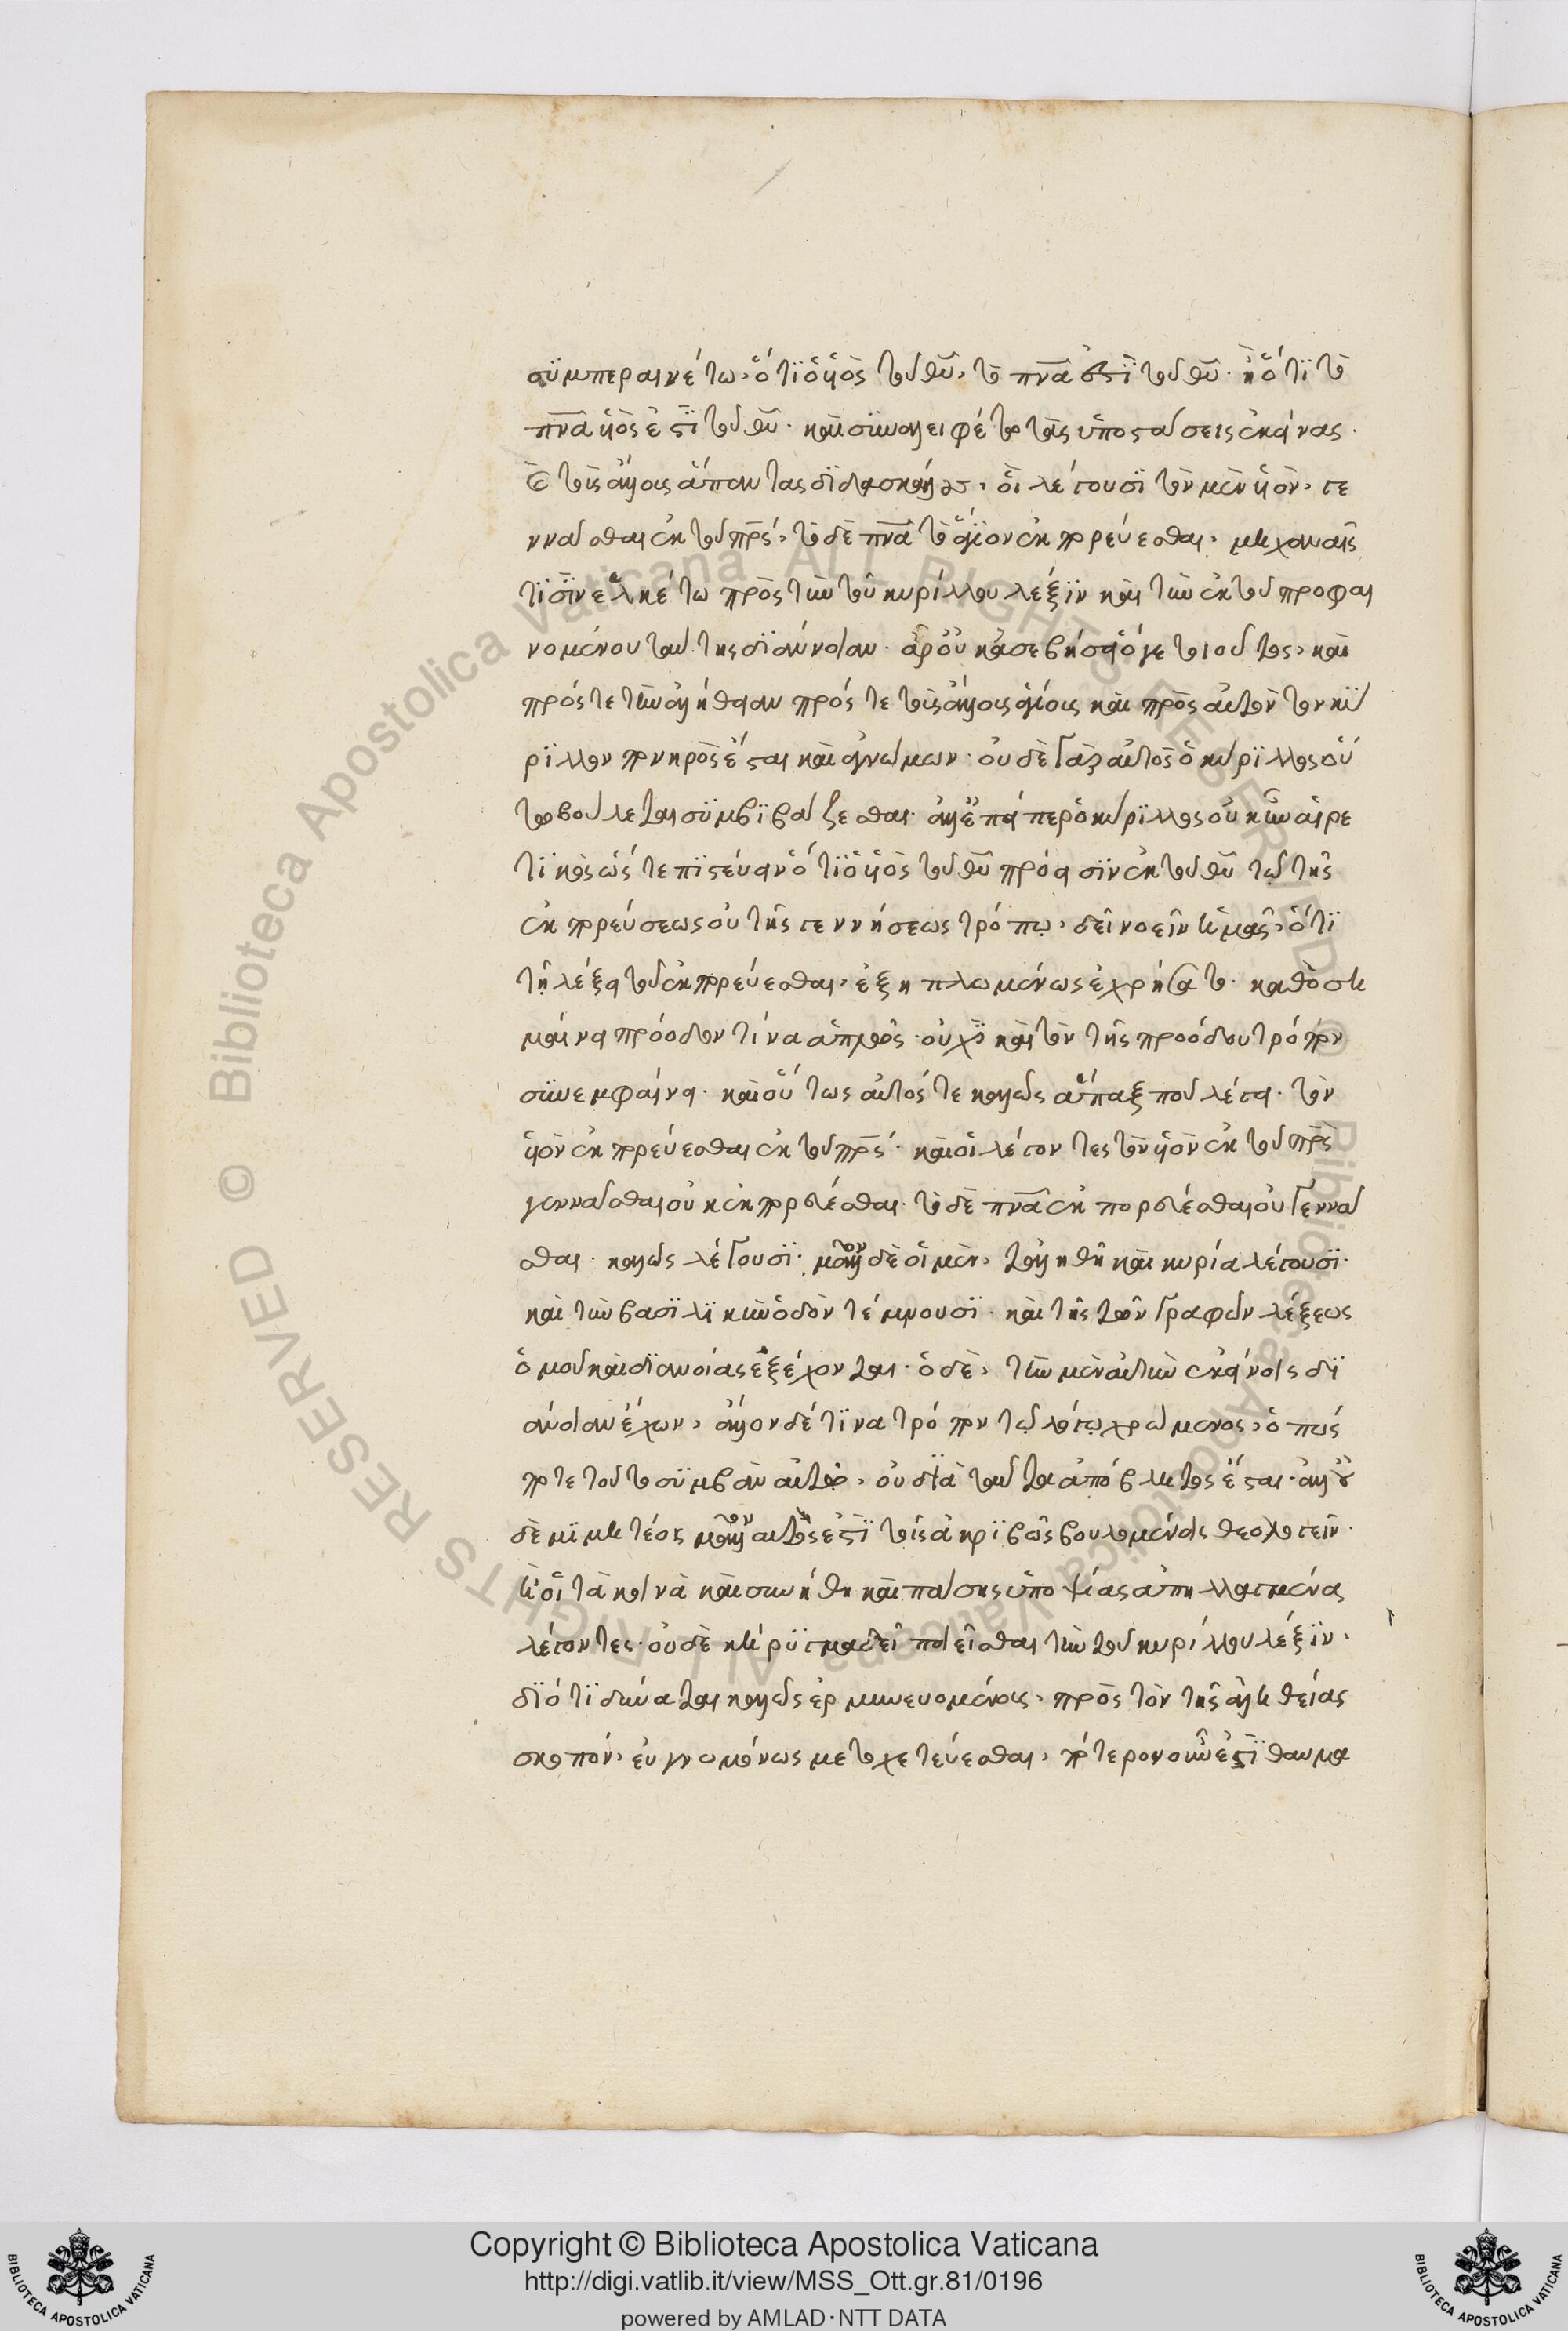 συμπεραινέτω, ὅτι ὁ υἱὸς τοῦ θῦ, τὸ πνᾶ ἐστὶ τοῦ θῦ· ἢ ὅτι τὸ
πνᾶ υἱὸς ἐστὶ τοῦ θῦ· καὶ συναλειφέτω τὰς ὑποστάσεις ἐκείνας·
τοῖς ἄλλοις ἅπαντας διδασκάλοις, οἳ λέγουσι τὸν μὲν υἱὸν, γε
ννᾶσθαι ἐκ τοῦ πρς, τὸ δὲ πνᾶ τὸ ἅγιον ἐκπορεύεσθαι, μηχαναῖς
τισὶν ἑλκέτω πρὸς τὴν τοῦ κυρίλλου λέξιν καὶ τὴν ἐκ τοῦ προφαι
νομένου ταύτης διάνοιαν· ἆρ' οὐκ ἀσεβήσει ὅ γε τοιοῦτος, καὶ
πρός τε τὴν ἀλήθειαν πρός τε τοῖς ἄλλοις ἁγίοις καὶ πρὸς αὐτὸν τὸν κύ
ριλλον πονηρὸς ἔσται καὶ ἀγνώμων· οὐδὲ γὰρ αὐτὸς ὁ κύριλλος οὕ
τω βούλεται συμβιβάζεσθαι· ἀλλ' ἐπείπερ ὁ κύριλλος οὐκ ἦν αἱρε
τικὸς ὥστε πιστεύειν ὅτι ὁ υἱὸς τοῦ θῦ πρόεισιν ἐκ τοῦ θῦ τῷ τῆς
ἐκπορεύσεως οὐ τῆς γεννήσεως τρόπῳ, δεῖ νοεῖν ἡμᾶς, ὅτι
τῇ λέξει τοῦ ἐκπορεύεσθαι, ἐξηπλωμένως ἐχρήσατο· καθὸ ση
μαίνει πρόοδον τινα ἁπλῶς· οὐχὶ καὶ τὸν τῆς προόδου τρόπον
συνεμφαίνει· καὶ οὕτως αὐτός τε καλῶς ἅπαξ που λέγει· τὸν
υἱὸν ἐκπορεύεσθαι ἐκ τοῦ πρς· καὶ οἱ λέγοντες τὸν υἱὸν ἐκ τοῦ πρς
γεννᾶσθαι οὐκ ἐκπορεύεσθαι· τὸ δὲ πνᾶ ἐκπορεύεσθαι οὐ γεννᾶ
σθαι· καλῶς λέγουσι· μᾶλλον δὲ οἱ μὲν, τἀληθῆ καὶ κυρία λέγουσι·
καὶ τὴν βασιλικὴν ὁδὸν τέμνουσι· καὶ τῆς τῶν γραφῶν λέξεως
ὁμοῦ καὶ διανοίας ἐξέχονται· ὁ δὲ, τὴν μὲν αὐτὴν ἐκείνοις δι
άνοιαν ἔχων, ἄλλον δέ τινα τρόπον τῷ λόγῳ χρώμενος, ὁπώς
ποτε τοῦτο συμβὰν αὐτῷ, οὐ διὰ ταῦτα ἀπόβλητος ἔσται· ἀλλ' οὐ
δὲ μιμητέος μᾶλλον αὐτὸς ἐστὶ τοῖς ἀκριβῶς βουλομένοις θεολογεῖν·
ἢ οἱ τὰ κοινὰ καὶ συνήθη καὶ πάσης ὑποψίας ἀπηλλαγμένα
λέγοντες· οὐδὲ κήρυγμα δεῖ ποιεῖσθαι τὴν τοῦ κυρίλλου λέξιν,
διότι δύναται καλῶς ἑρμηνευομένοις, πρὸς τὸν τῆς ἀληθείας
σκοπόν, εὐγνωμόνως μετοχετεύεσθαι, πότερον οὖν ἐστὶ θαυμα